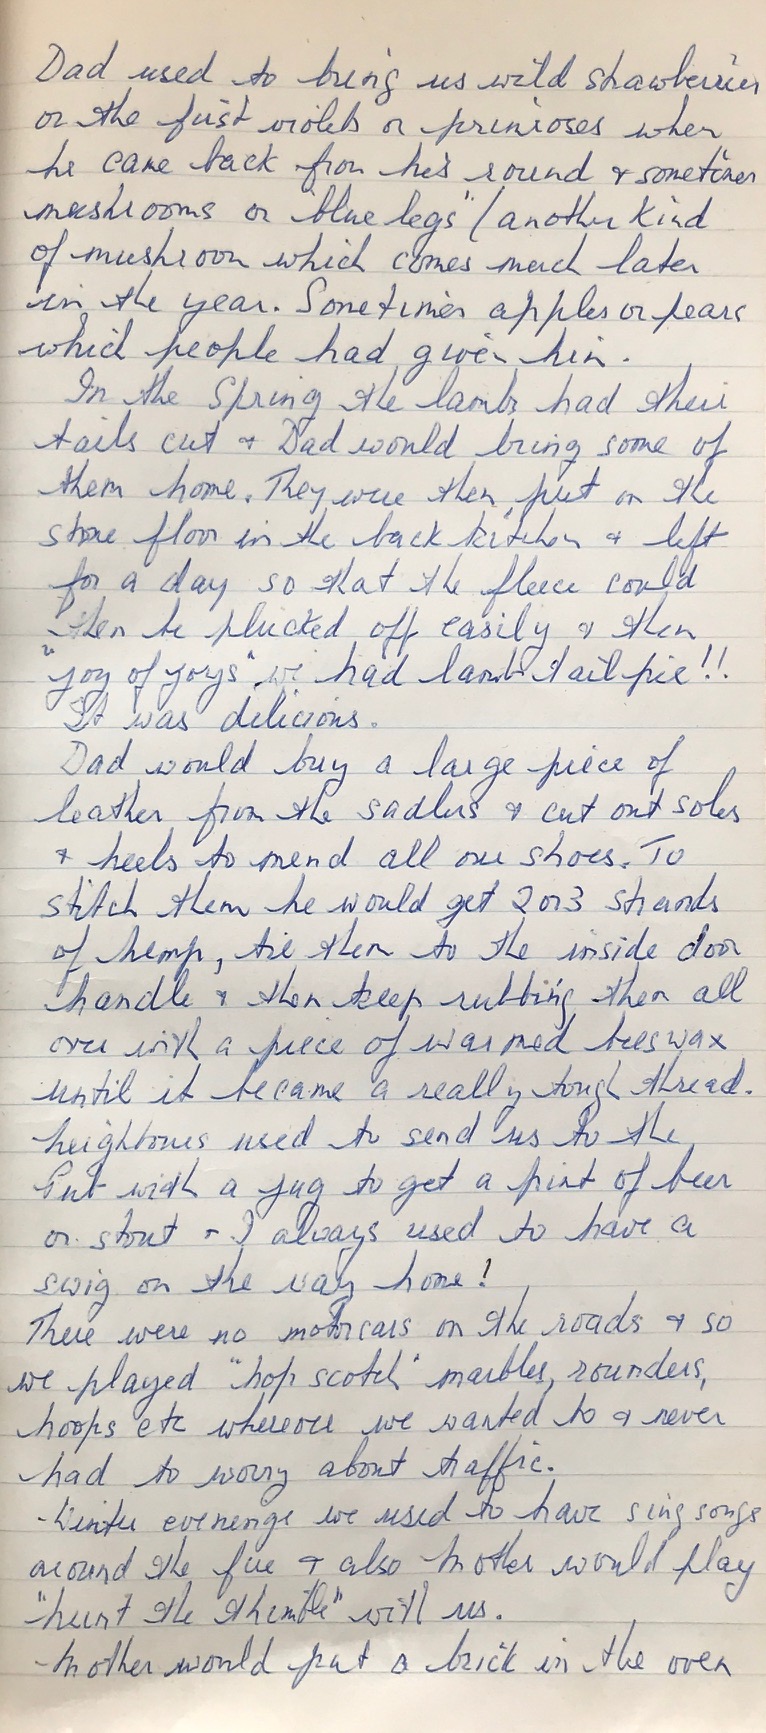 Dad used to bring us wild strawberries
or the first violets or primroses when
he came back from his round & sometimes
mushrooms or "blue legs" (another kind
of mushroom which comes much later
in the year. Sometimes apples or pears
which people had given him.
In the Spring the lambs had their
tails cut & Dad would bring some of
them home. They were then put on the
stone floor in the back kitchen & left
for a day so that the fleece could
then be plucked off easily & then
"joy of joys" we had lambs tail pie!!
It was delicious.
Dad would buy a large piece of
leather from the sadlers & cut out soles
& heels to mend all our shoes. To
stitch them he would get 2 or 3 strands
of hemp, tie them to the inside door
handle & then keep rubbing them all
over with a piece of warmed beeswax
until it became a really tough thread.
Neighbours used to send us to the
Pub with a jug to get a pint of beer
or stout & I always used to have a
swig on the way home!
There were no motorcars on the roads & so
we played "hop scotch" marbles, rounders,
hoops etc wherever we wanted to & never
had to worry about traffic.
Winter evenings we used to have sing songs
around the fire & also Mother would play
"hunt the thimble" with us.
Mother would put a brick in the oven